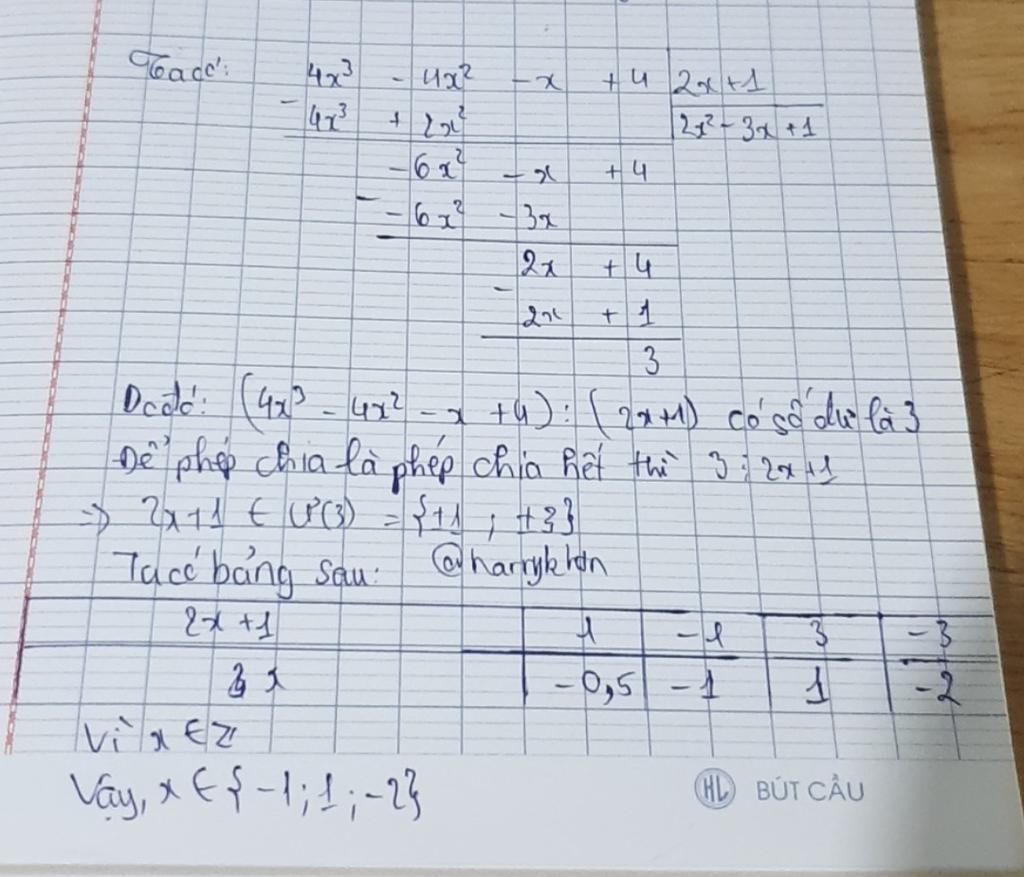 Ta có: 4x³ - 4x² - x + 4 | 2x+1
- 4x³ + 2x² | 2x² - 3x + 1
- 6x² - x + 4
- - 6x² - 3x
2x + 4
- 2x + 1
3
Do đó: (4x³ - 4x² - x + 4) : (2x+1) có số dư là 3
Để phép chia là phép chia hết thì 3 ⋮ 2x+1
=> 2x+1 ∈ Ư(3) = {±1 ; ±3}
Ta có bảng sau: @harrykhn
2x +1 | 1 | -1 | 3 | -3
x | -0,5 | -1 | 1 | -2
Vì x ∈ Z
Vậy, x ∈ {-1; 1; -2}
HL BÚT CÂU